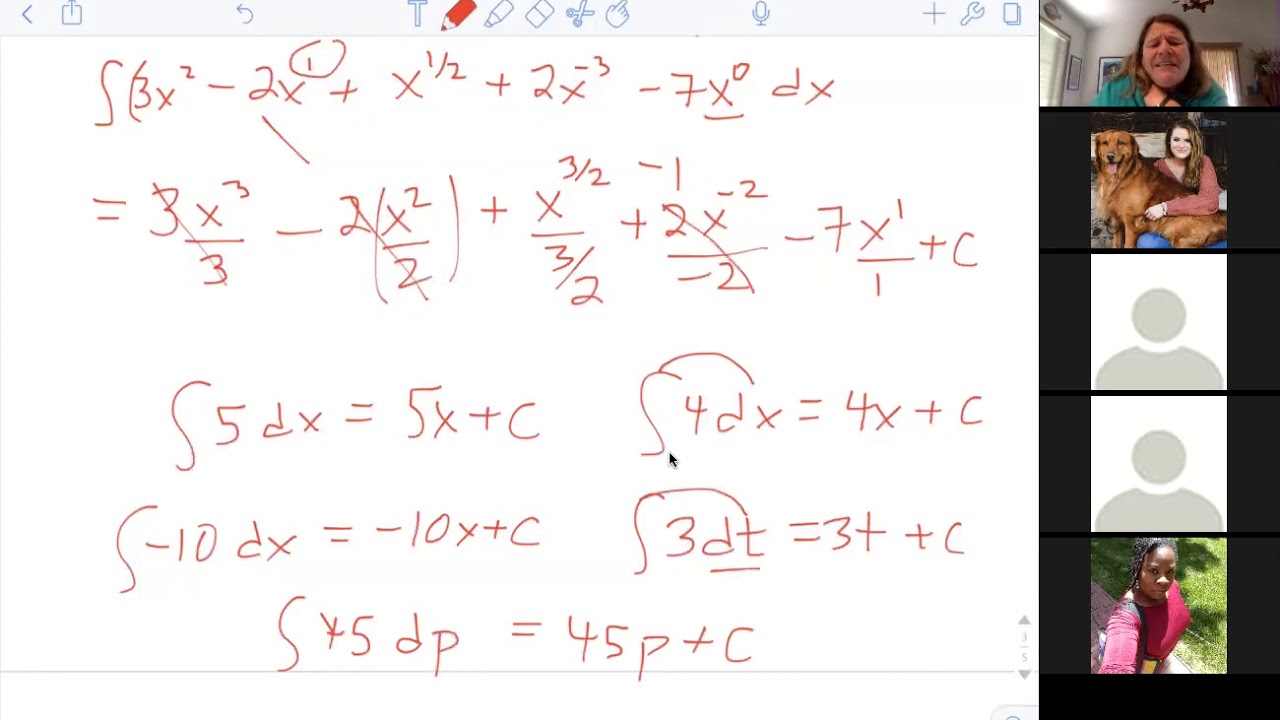 ∫(3x² − 2x¹ + x^1/2 + 2x⁻³ − 7x⁰ dx
= 3x³/3 − 2(x²/2) + x^3/2/3/2 + 2x⁻²/−2 − 7x¹/1 + C
−1
∫5 dx = 5x + C
∫4 dx = 4x + C
∫−10 dx = −10x + C
∫3 dt = 3t + C
∫45 dp = 45p + C
3
5